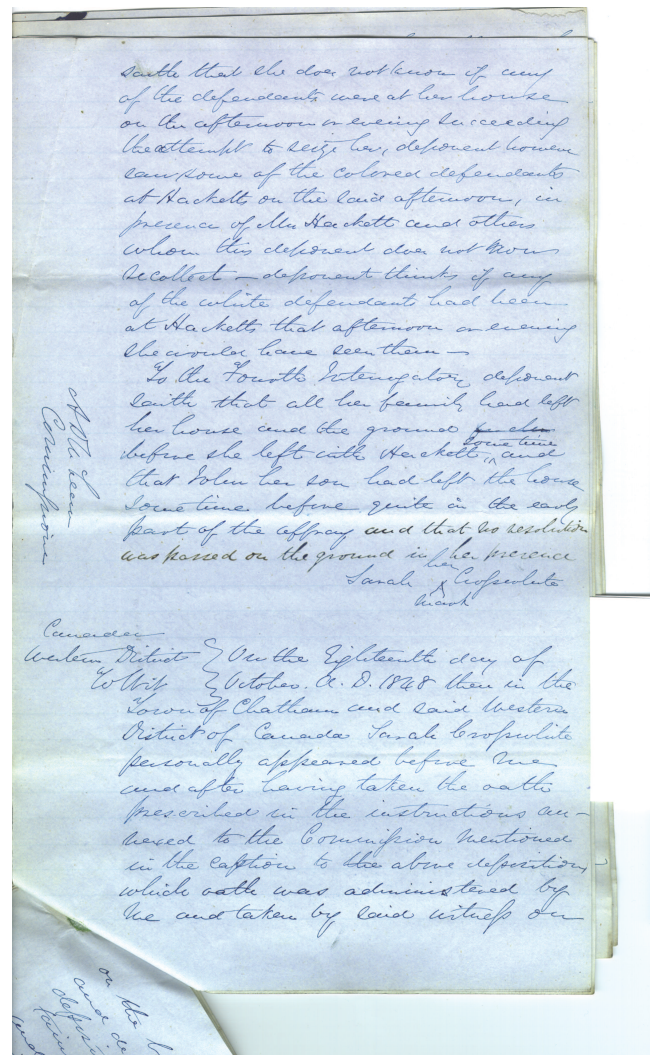 saith that she does not know if any
of the defendants were at her house
on the afternoon or evening succeeding
the attempt to seize her, deponent however
saw some of the colored defendants
at Hacketts on the said afternoon, in
presence of Mr Hackett and others
whom this deponent does not now
recollect — deponent thinks if any
of the white defendants had been
at Hacketts that afternoon or evening
she would have seen them —
To the Fourth Interrogatory deponent
saith that all her family had left
her house and the ground
before she left with Hackett, sometime and
that John her son had left the house
sometime before quite in the early
part of the affray and that no resolution
was passed on the ground in her presence
Sarah her Crosswhite
mark
Commissioner
Canada
Western District } On the Eighteenth day of
To Wit } October. A. D. 1848 then in the
Town of Chatham and said Western
District of Canada Sarah Crosswhite
personally appeared before me
and after having taken the oath
prescribed in the instructions an-
nexed to the Commission mentioned
in the caption to the above deposition,
which oath was administered by
me and taken by said witness on
on the
and de